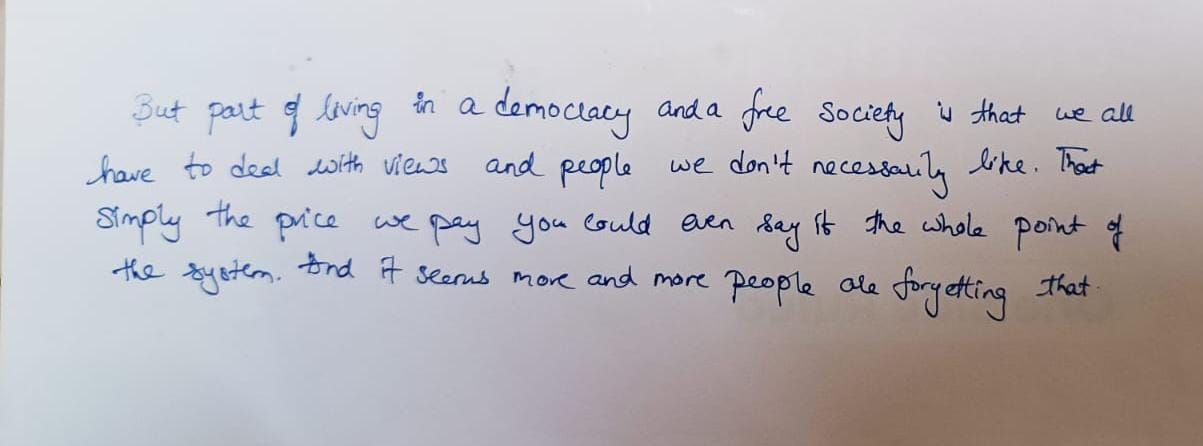 But part of living in a democracy and a free society is that we all
have to deal with views and people we don't necessarily like. That
simply the price we pay you could even say it the whole point of
the system. And it seems more and more people are forgetting that.